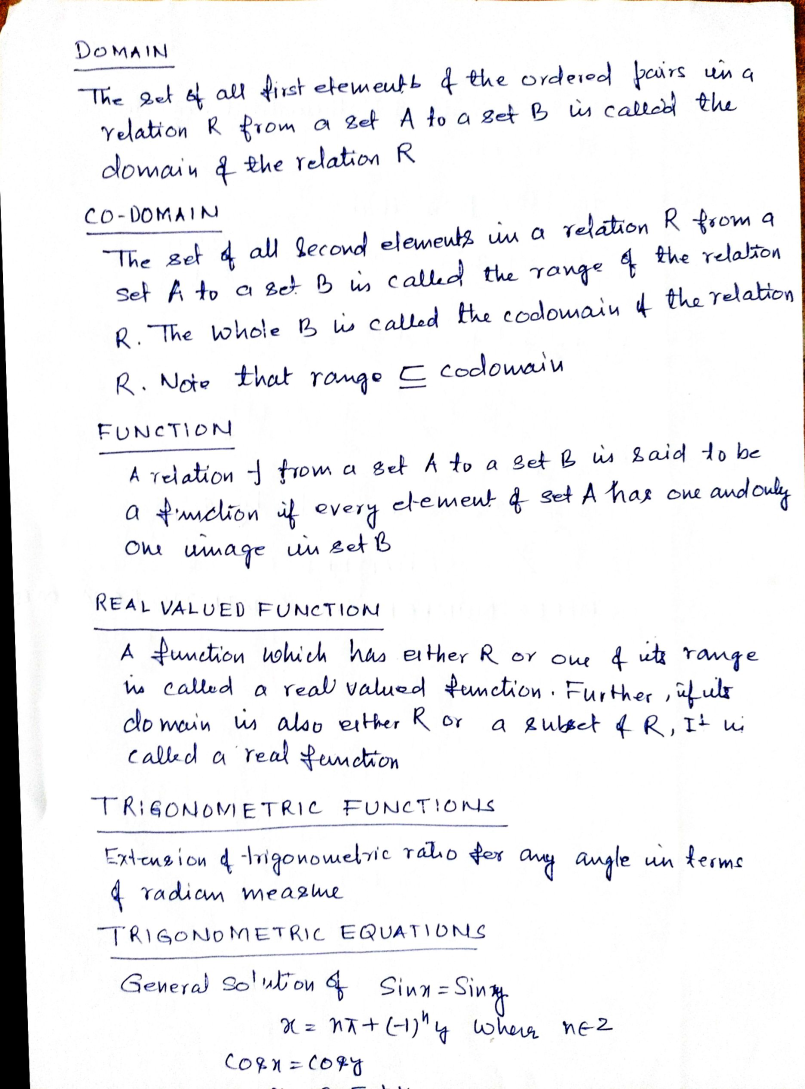 DOMAIN
The set of all first elements of the ordered pairs in a
relation R from a set A to a set B is called the
domain of the relation R
CO-DOMAIN
The set of all second elements in a relation R from a
set A to a set B is called the range of the relation
R. The whole B is called the codomain of the relation
R. Note that range ⊆ codomain
FUNCTION
A relation f from a set A to a set B is said to be
a function if every element of set A has one and only
one image in set B
REAL VALUED FUNCTION
A function which has either R or one of its range
is called a real valued function. Further, if its
domain is also either R or a subset of R, It is
called a real function
TRIGONOMETRIC FUNCTIONS
Extension of trigonometric ratio for any angle in terms
of radian measure
TRIGONOMETRIC EQUATIONS
General solution of Sinx = Siny
x = nπ + (-1)ⁿy where n∈Z
cosx = cosy